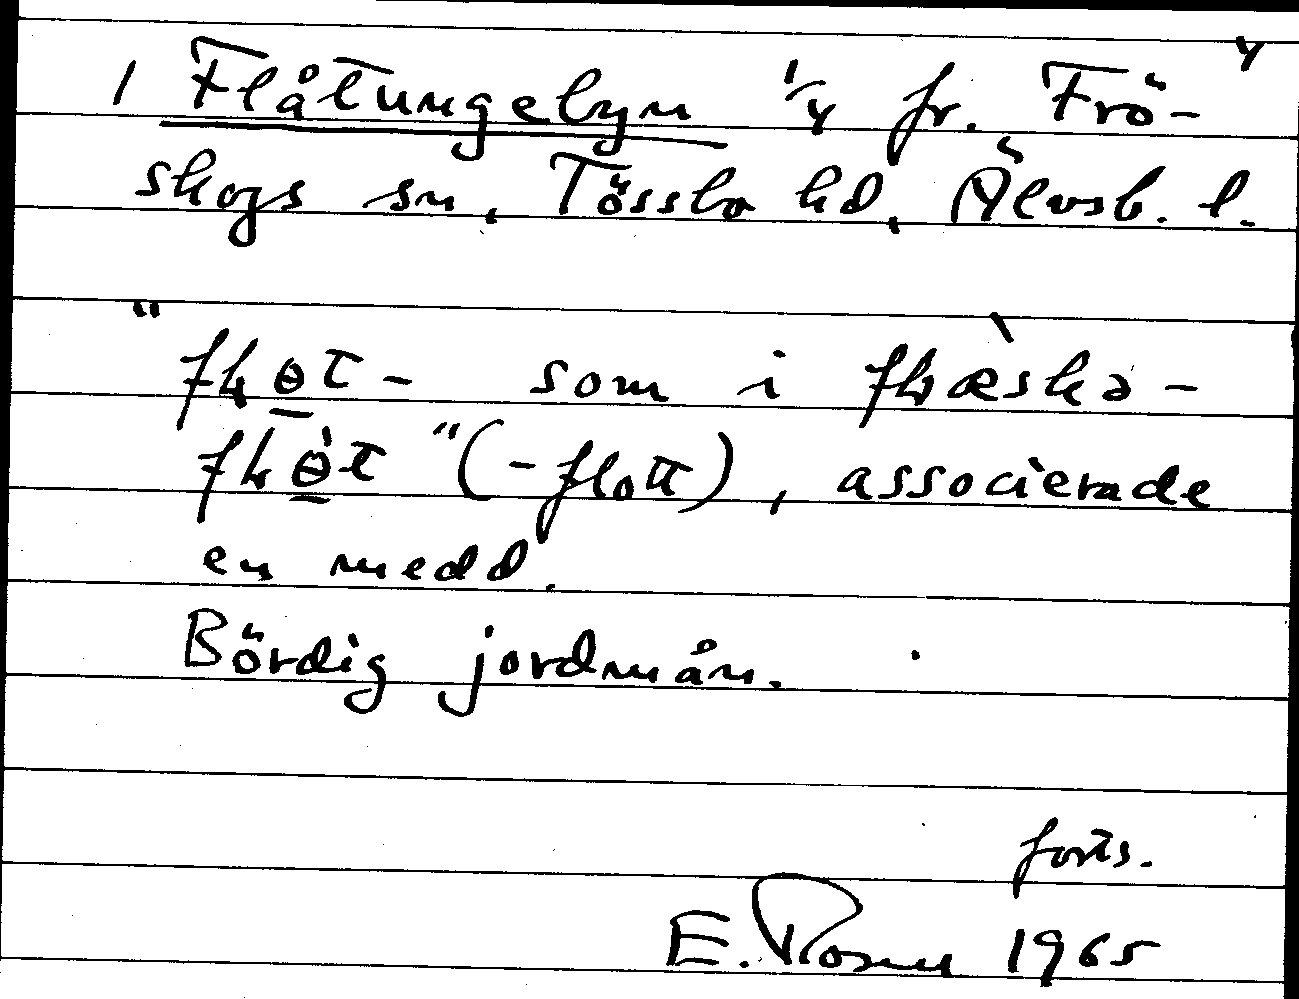 4
1 Flåtungebyn 1/4 fr. Frö-
skogs sn, Tössbo hd, Älvsb. l.
"fłɵt- som i fłæ̀skə-
fłɵ̀t" (-flott), associerade
en medd.
Bördig jordmån.
forts.
E. Rosell 1965